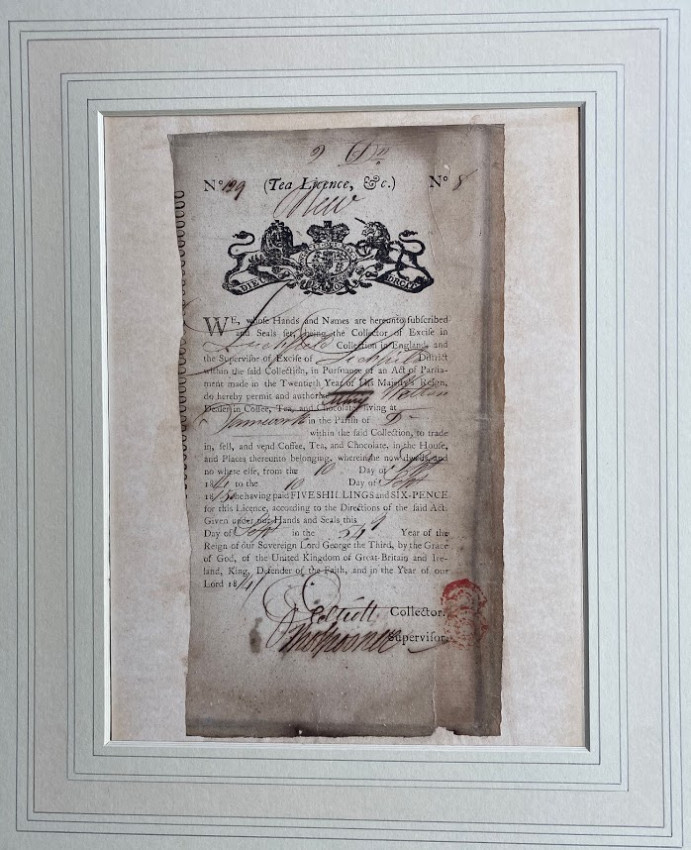 No 199 (Tea Licence, &c.) No 8
New
DIEU ET MON DROIT
WE, whose Hands and Names are hereunto subscribed
and Seals set, being the Collector of Excise in
Lichfield Collection in England, and
the Supervisor of Excise of Lichfield District
within the said Collection, in Pursuance of an Act of Parlia-
ment made in the Twentieth Year of His Majesty's Reign,
do hereby permit and authorise
Dealer in Coffee, Tea, and Chocolate, living at
Tamworth in the Parish of Do
within the said Collection, to trade
in, sell, and vend Coffee, Tea, and Chocolate, in the House,
and Places thereunto belonging, wherein he now dwells, and
no where else, from the 10 Day of
18 to the 10 Day of Sept
18 he having paid FIVE SHILLINGS and SIX-PENCE
for this Licence, according to the Directions of the said Act.
Given under our Hands and Seals this
Day of Sept in the 54 Year of the
Reign of our Sovereign Lord George the Third, by the Grace
of God, of the United Kingdom of Great-Britain and Ire-
land, King, Defender of the Faith, and in the Year of our
Lord 18
Collector.
Supervisor.